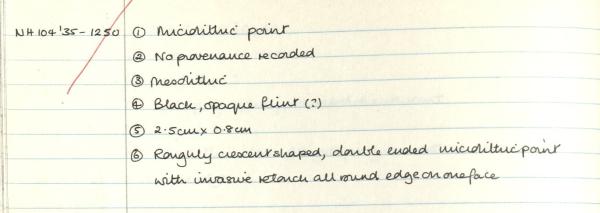 NH104'35-1250 ① Microlithic point
② No provenance recorded
③ Mesolithic
④ Black, opaque flint (?)
⑤ 2.5cm x 0.8cm
⑥ Roughly crescent shaped, double ended microlithic point
with invasive retouch all round edge on one face